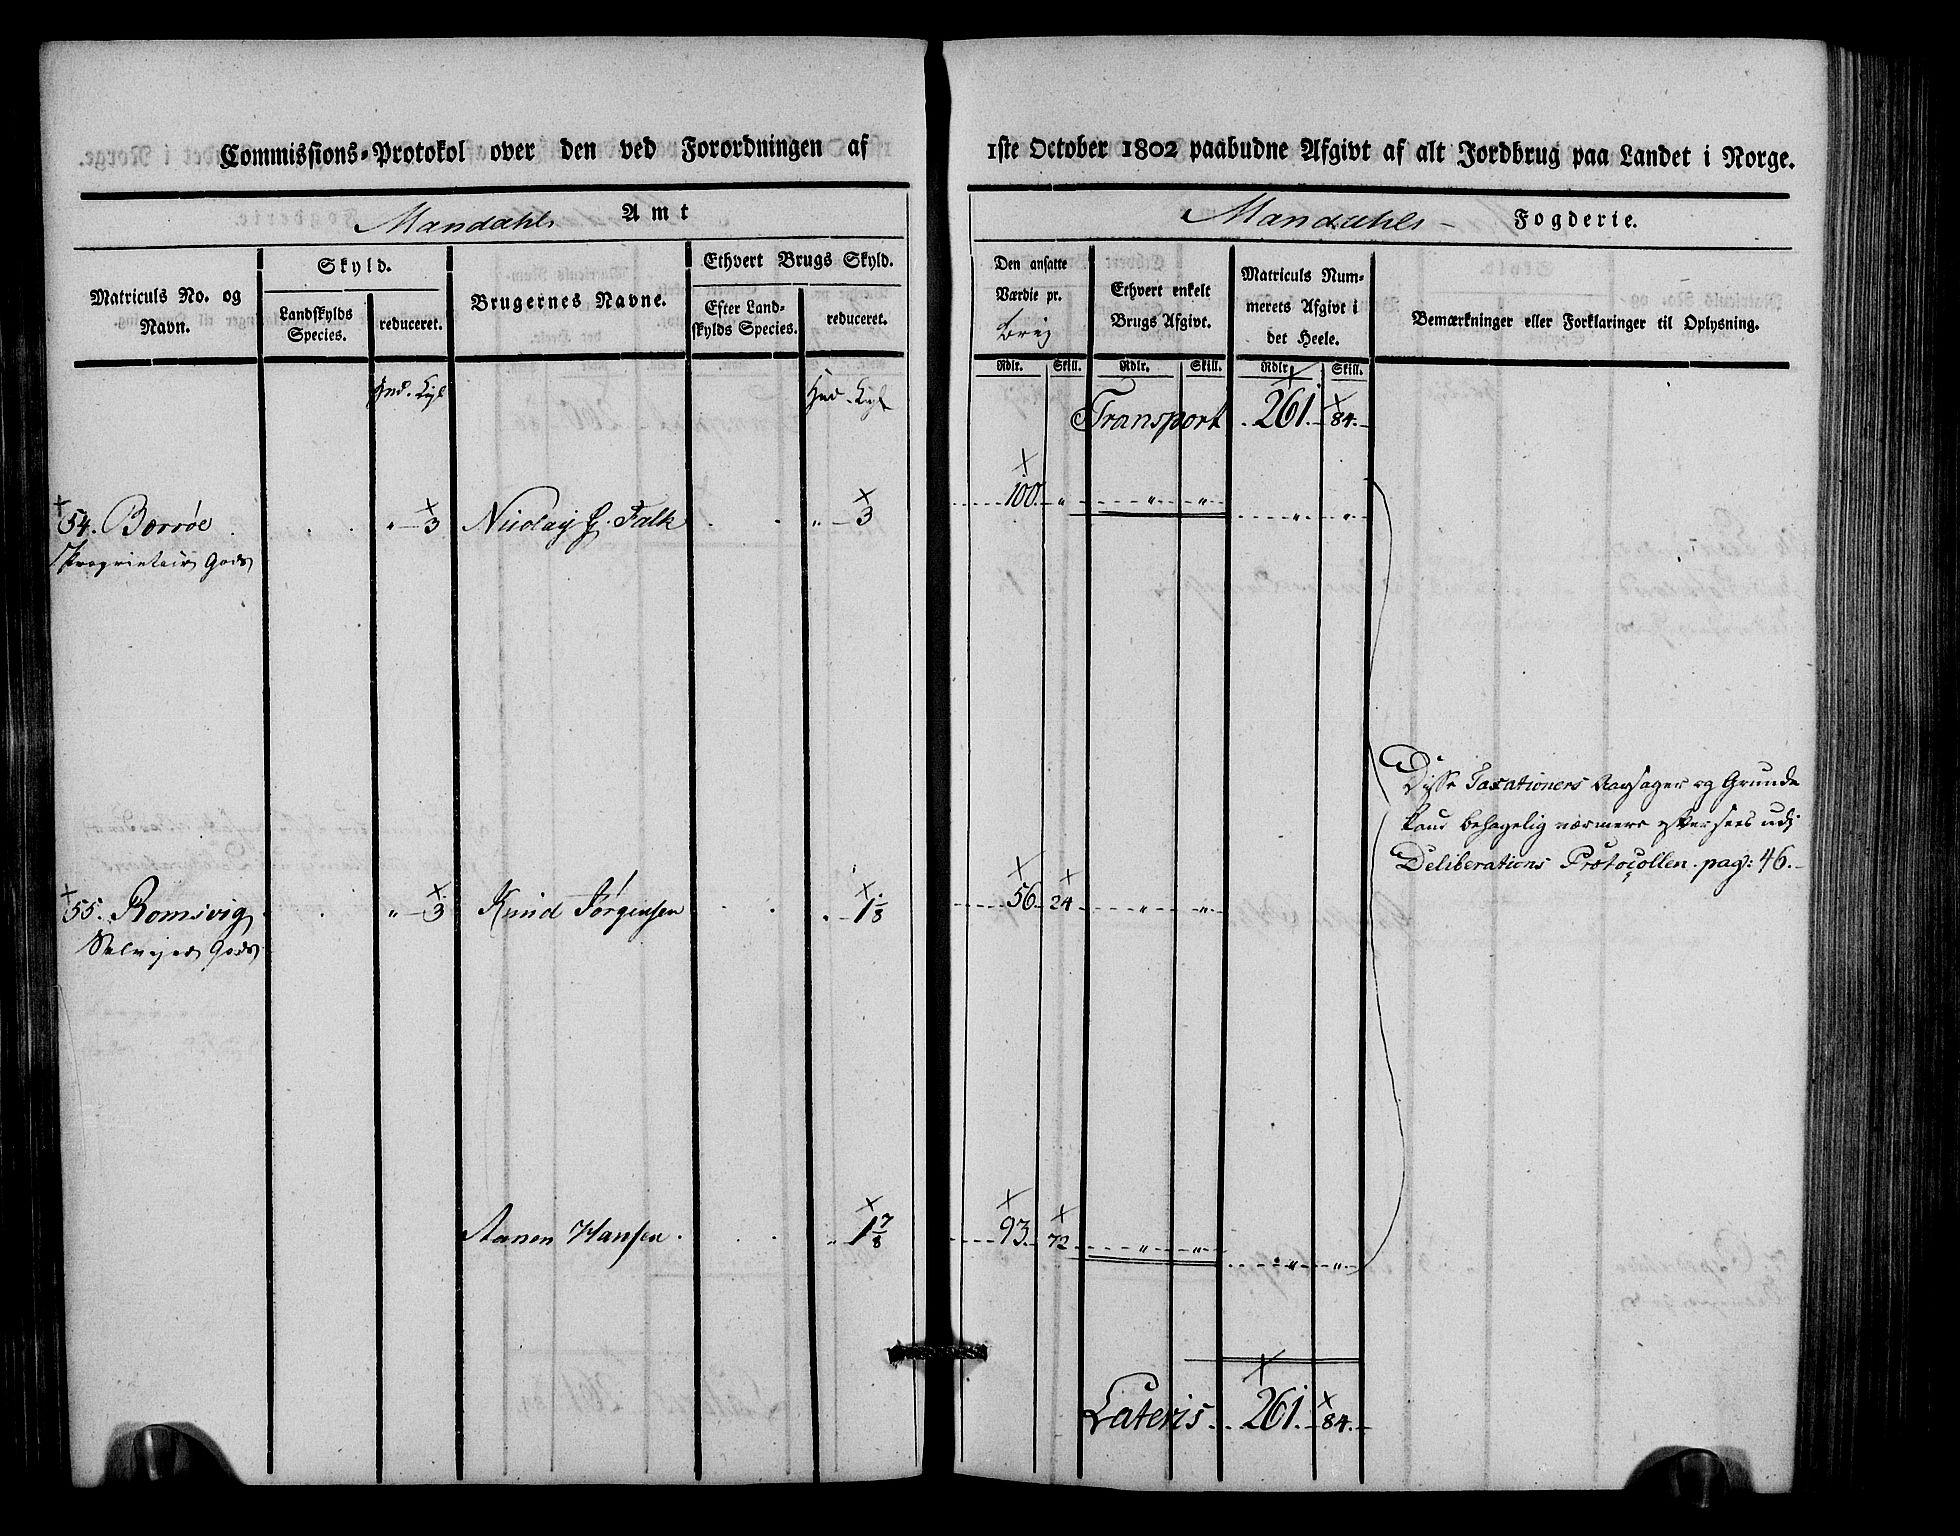 Commissions-Protokol over den ved Forordningen af 1ste October 1802 paabudne Afgivt af alt Jordbrug paa Landet i Norge.
Mandahls Amt
Mandahls Fogderie.
Matriculs No. og Navn.
Skyld.
Landskylds Species.
reduceret.
Brugernes Navne.
Ethvert Brugs Skyld.
Efter Landskylds Species.
reduceret.
Den ansatte Værdie pr.
Ethvert enkelt Brugs Afgivt.
Matriculs Nummerets Afgivt i det Heele.
Bemærkninger eller Forklaringer til Oplysning.
Rdlr. Skill. Rdlr. Skill. Rdlr. Skill.
Transport 261. 84.
54. Borrøe " 3 Nicolay G. Falk " 3 100. " " " " "
Proprietair Gods
Disse Taxationers Aarsager og Grunde
kand behagelig nærmere eftersees udj
Deliberations Protocollen pag: 46.
55. Romsvig " 3 Knud Jørgensen 1 1/8 56 24 " "
Selvejer Gods
Aanen Hansen 1 7/8 93 72 " " " "
Lateris 261. 84.